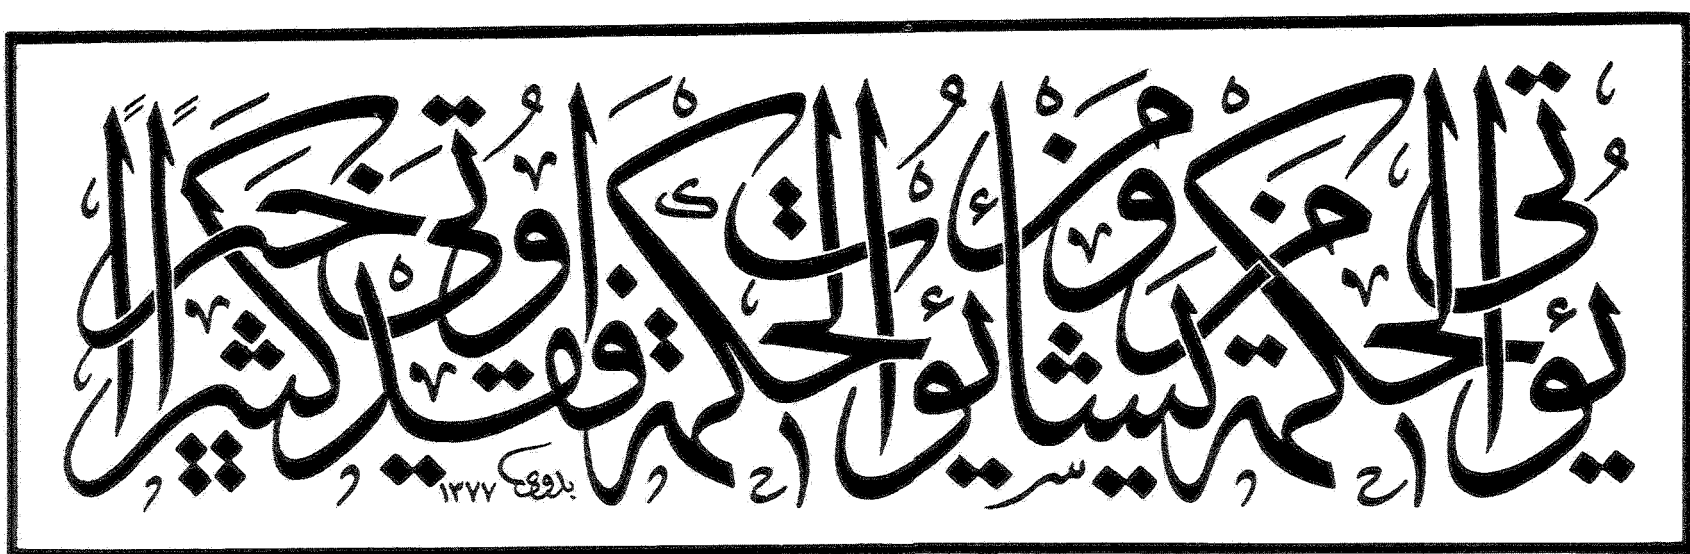 يُؤْتِي الْحِكْمَةَ مَنْ يَشَاءُ وَمَنْ يُؤْتَ الْحِكْمَةَ فَقَدْ أُوتِيَ خَيْرًا كَثِيرًا
بدوي ١٣٧٧